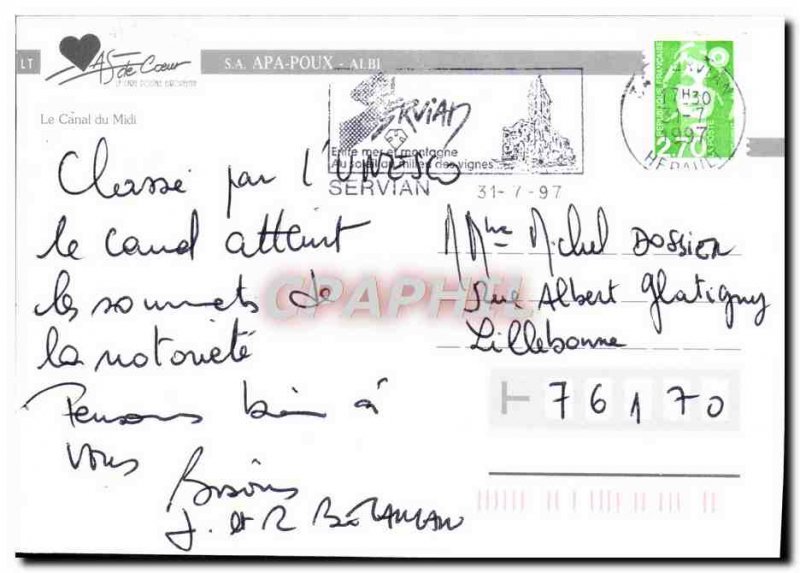 LT
AS de Cœur
LA CARTE POSTALE EUROPÉENNE
S.A. APA-POUX - ALBI
Le Canal du Midi
SERVIAN
Entre mer et montagne
Au soleil au milieu des vignes
SERVIAN 31-7-97
7H30
1997
HERAULT
REPUBLIQUE FRANÇAISE
2,70
Classé par l'UNESCO
le canal atteint
les sommets de
la notoriété
Pensons bien à
vous
Bisous
J. et R
CPAPHIL
Mme Michel DOSSIER
Rue Albert Glatigny
Lillebonne
76170